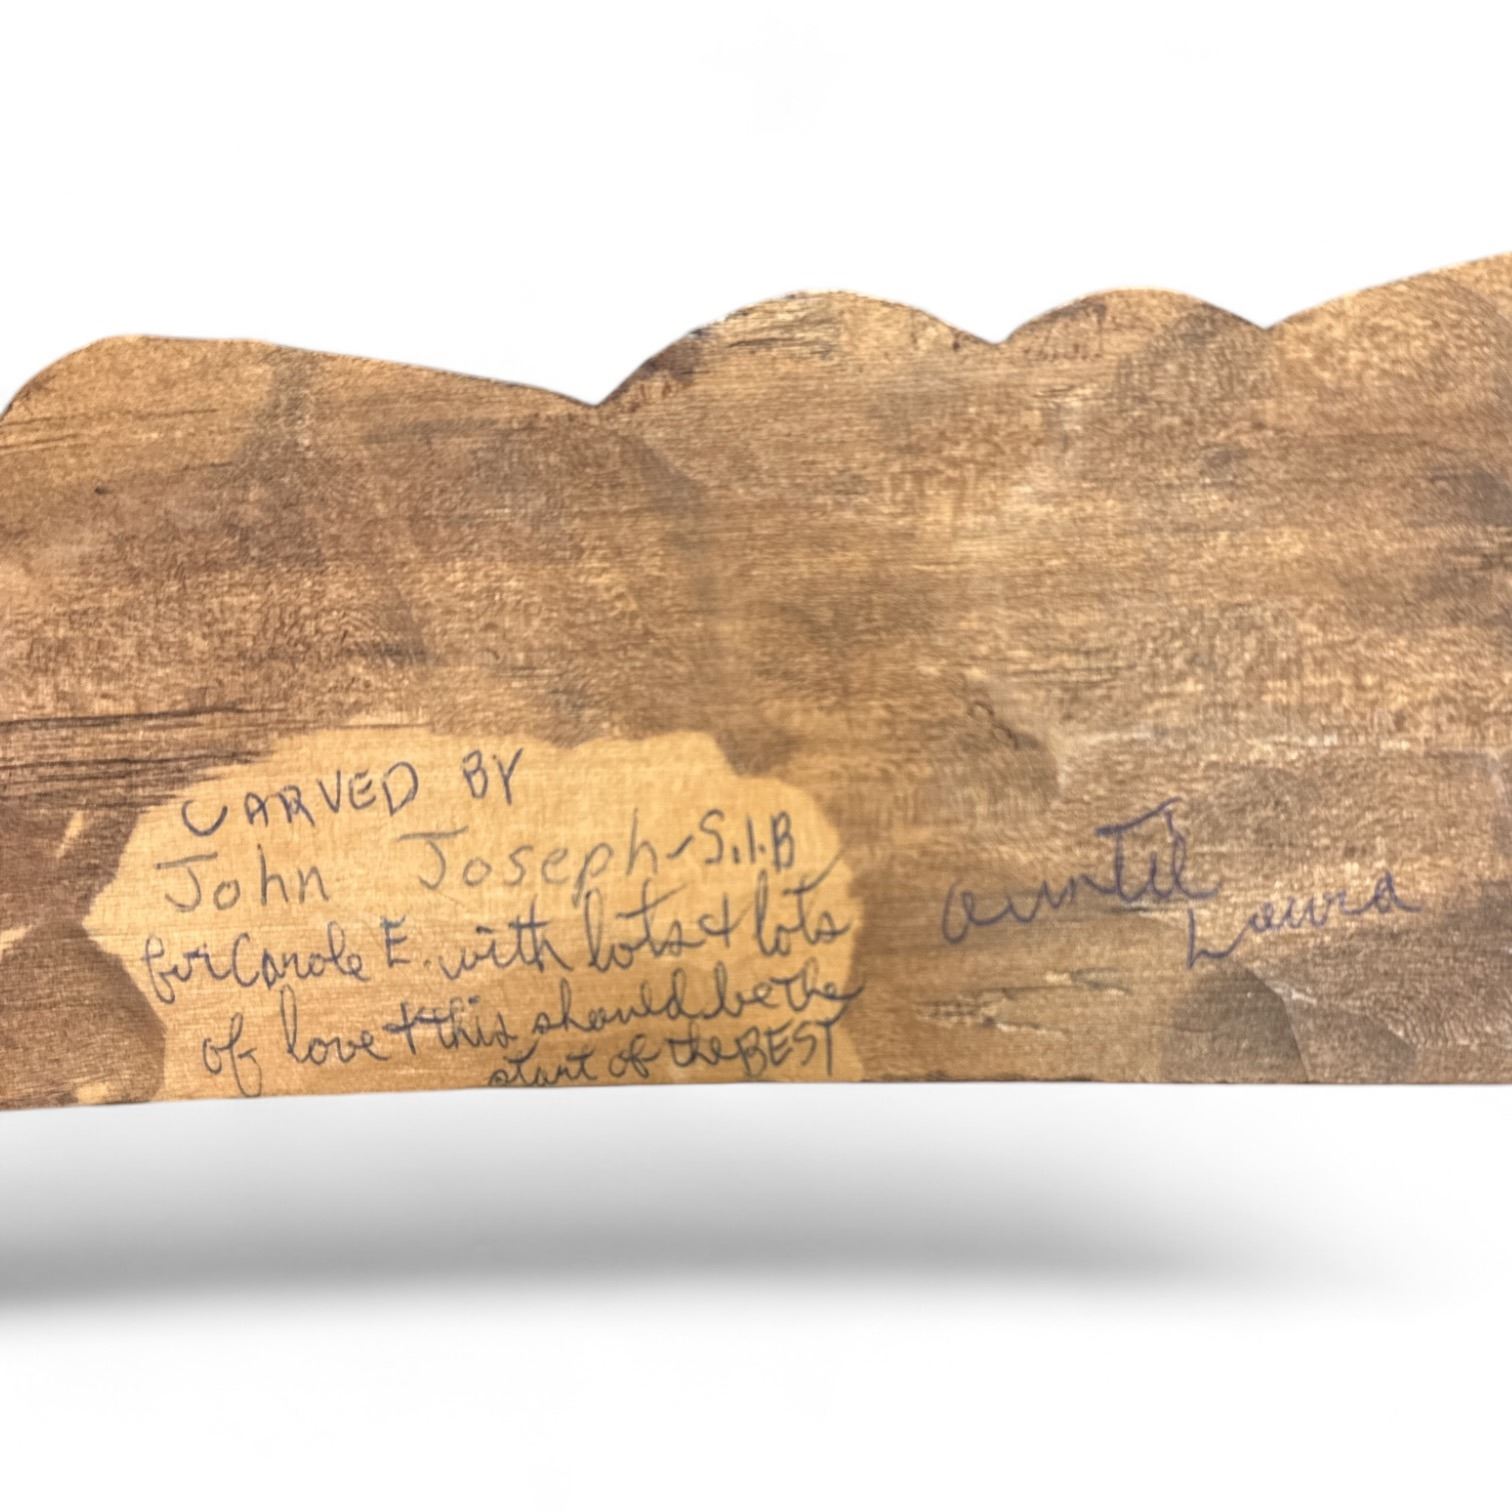 CARVED BY
John Joseph-S.I.B
for Carole E. with lots & lots
of love & this should be the
start of the BEST
auntie
Laura